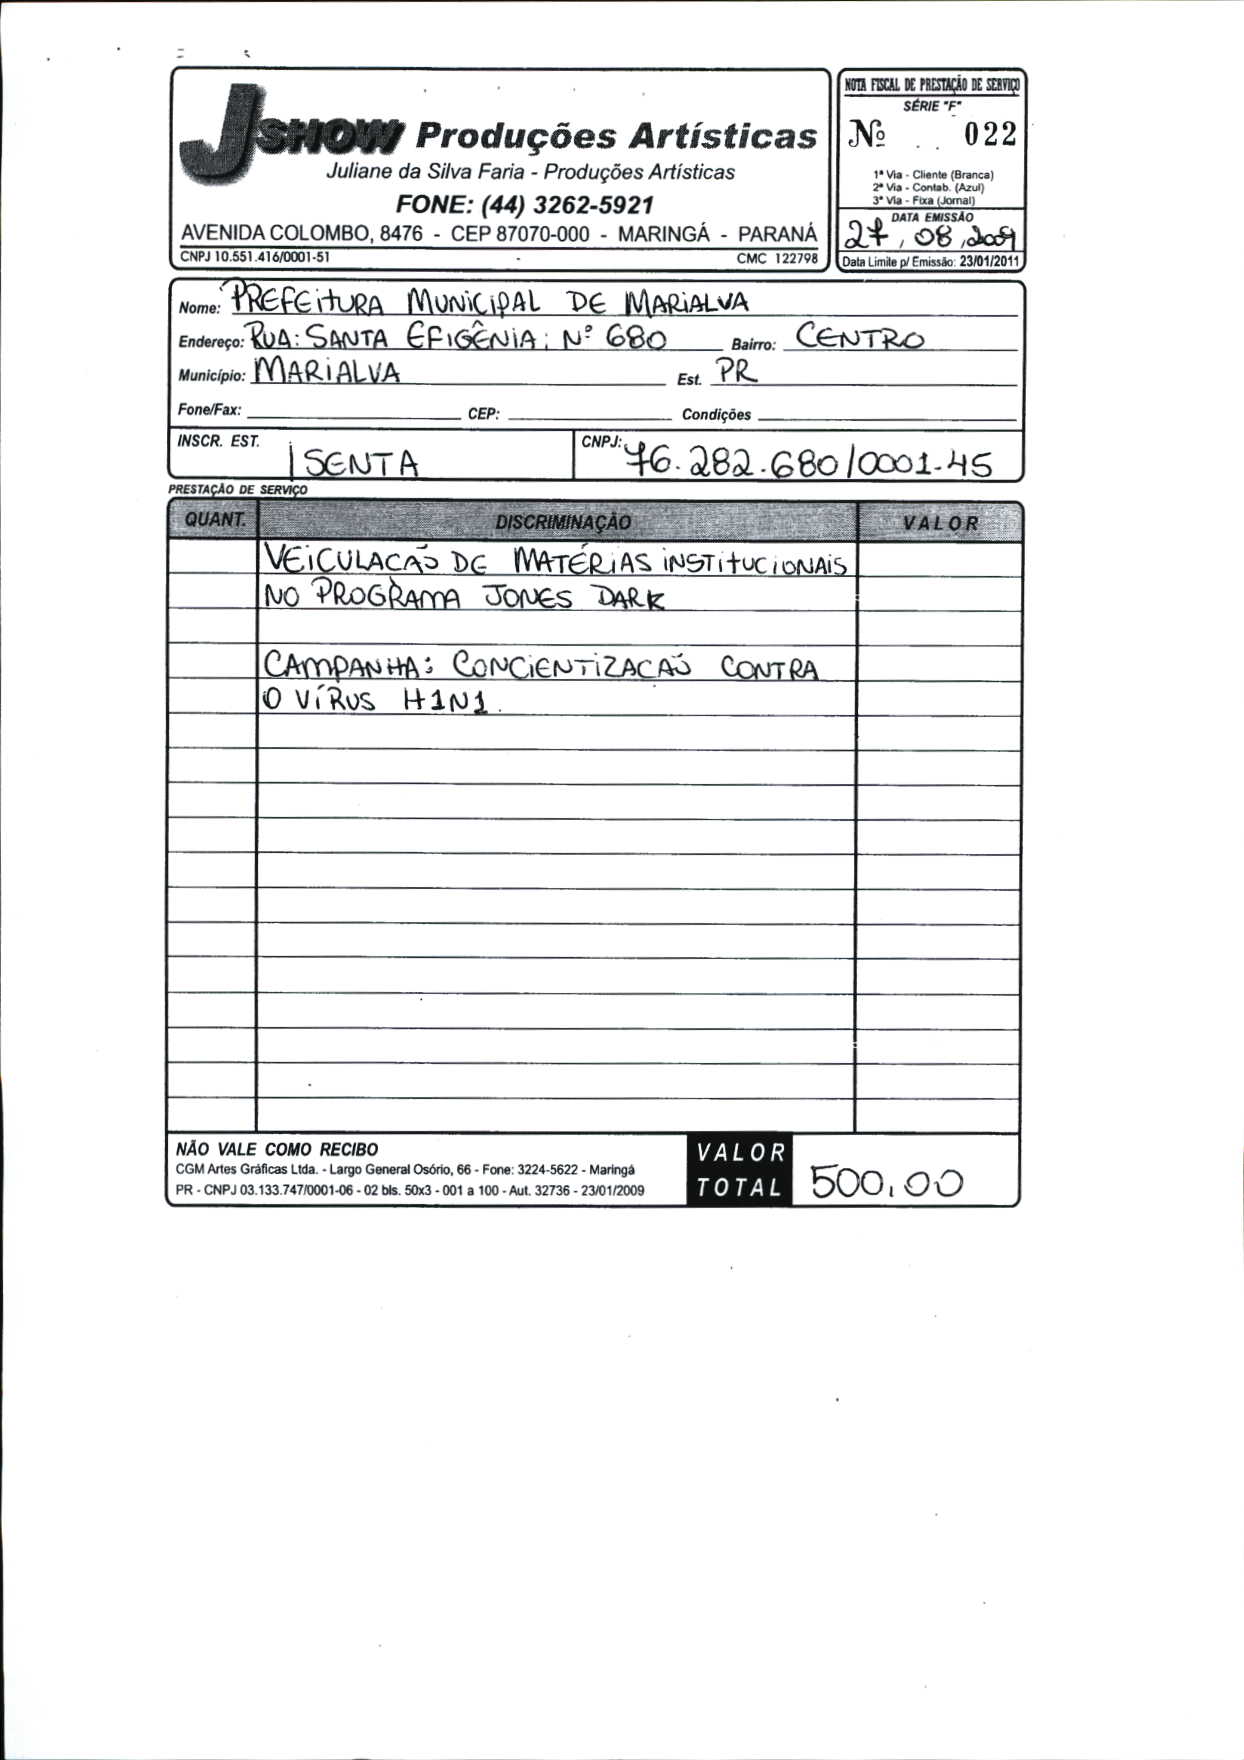 JSHOW Produções Artísticas
Juliane da Silva Faria - Produções Artísticas
FONE: (44) 3262-5921
AVENIDA COLOMBO, 8476 - CEP 87070-000 - MARINGÁ - PARANÁ
CNPJ 10.551.416/0001-51 CMC 122798
NOTA FISCAL DE PRESTAÇÃO DE SERVIÇO
SÉRIE "F"
Nº 022
1ª Via - Cliente (Branca)
2ª Via - Contab. (Azul)
3ª Via - Fixa (Jornal)
DATA EMISSÃO
27, 08, 2009
Data Limite p/ Emissão: 23/01/2011
Nome: PREFEITURA MUNICIPAL DE MARIALVA
Endereço: RUA: SANTA EFIGÊNIA; Nº 680 Bairro: CENTRO
Município: MARIALVA Est. PR
Fone/Fax: CEP: Condições
INSCR. EST. ISENTA CNPJ: 76.282.680/0001-45
PRESTAÇÃO DE SERVIÇO
QUANT. DISCRIMINAÇÃO VALOR
VEICULACÃO DE MATÉRIAS INSTITUCIONAIS
NO PROGRAMA JONES DARK
CAMPANHA: CONCIENTIZACÃO CONTRA
O VÍRUS H1N1.
NÃO VALE COMO RECIBO
CGM Artes Gráficas Ltda. - Largo General Osório, 66 - Fone: 3224-5622 - Maringá
PR - CNPJ 03.133.747/0001-06 - 02 bls. 50x3 - 001 a 100 - Aut. 32736 - 23/01/2009
VALOR
TOTAL 500,00